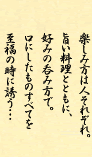 楽しみ方は人それぞれ。
旨い料理とともに、
好みの呑み方で。
口にしたものすべてを
至福の時に誘う…